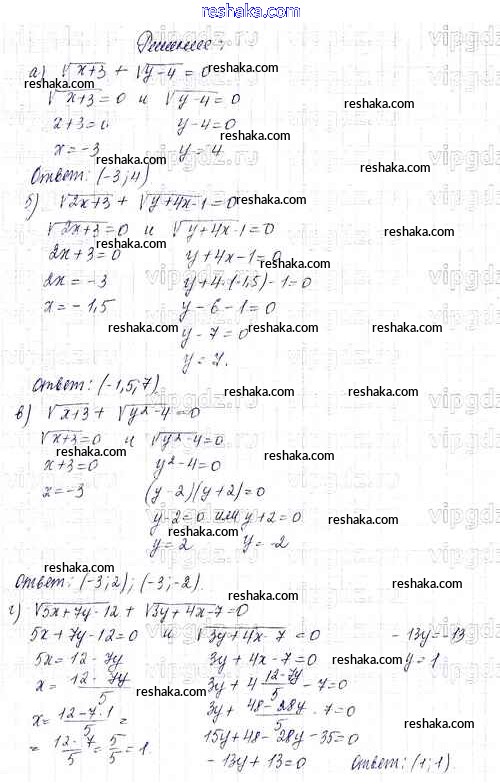 reshaka.com
Решение:
а) √(x+3) + √(y-4) = 0
√(x+3) = 0 и √(y-4) = 0
x+3=0 y-4=0
x=-3 y=4
Ответ: (-3; 4)
б) √(2x+3) + √(y+4x-1) = 0
√(2x+3) = 0 и √(y+4x-1) = 0
2x+3=0 y+4x-1=0
2x=-3 y+4·(-1,5)-1=0
x=-1,5 y-6-1=0
y-7=0
y=7.
Ответ: (-1,5; 7)
в) √(x+3) + √(y²-4) = 0
√(x+3) = 0 и √(y²-4) = 0
x+3=0 y²-4=0
x=-3 (y-2)(y+2)=0
y-2=0 или y+2=0
y=2 y=-2
Ответ: (-3; 2); (-3; -2).
г) √(5x+7y-12) + √(3y+4x-7) = 0
5x+7y-12=0 и √(3y+4x-7) = 0 -13y=-13
5x=12-7y 3y+4x-7=0 y=1
x=(12-7y)/5 3y+4 (12-7y)/5 -7=0
x=(12-7·1)/5 = 3y+ (48-28y)/5 - 7=0
= (12-7)/5 = 5/5 = 1. 15y+48-28y-35=0
-13y+13=0 Ответ: (1; 1).